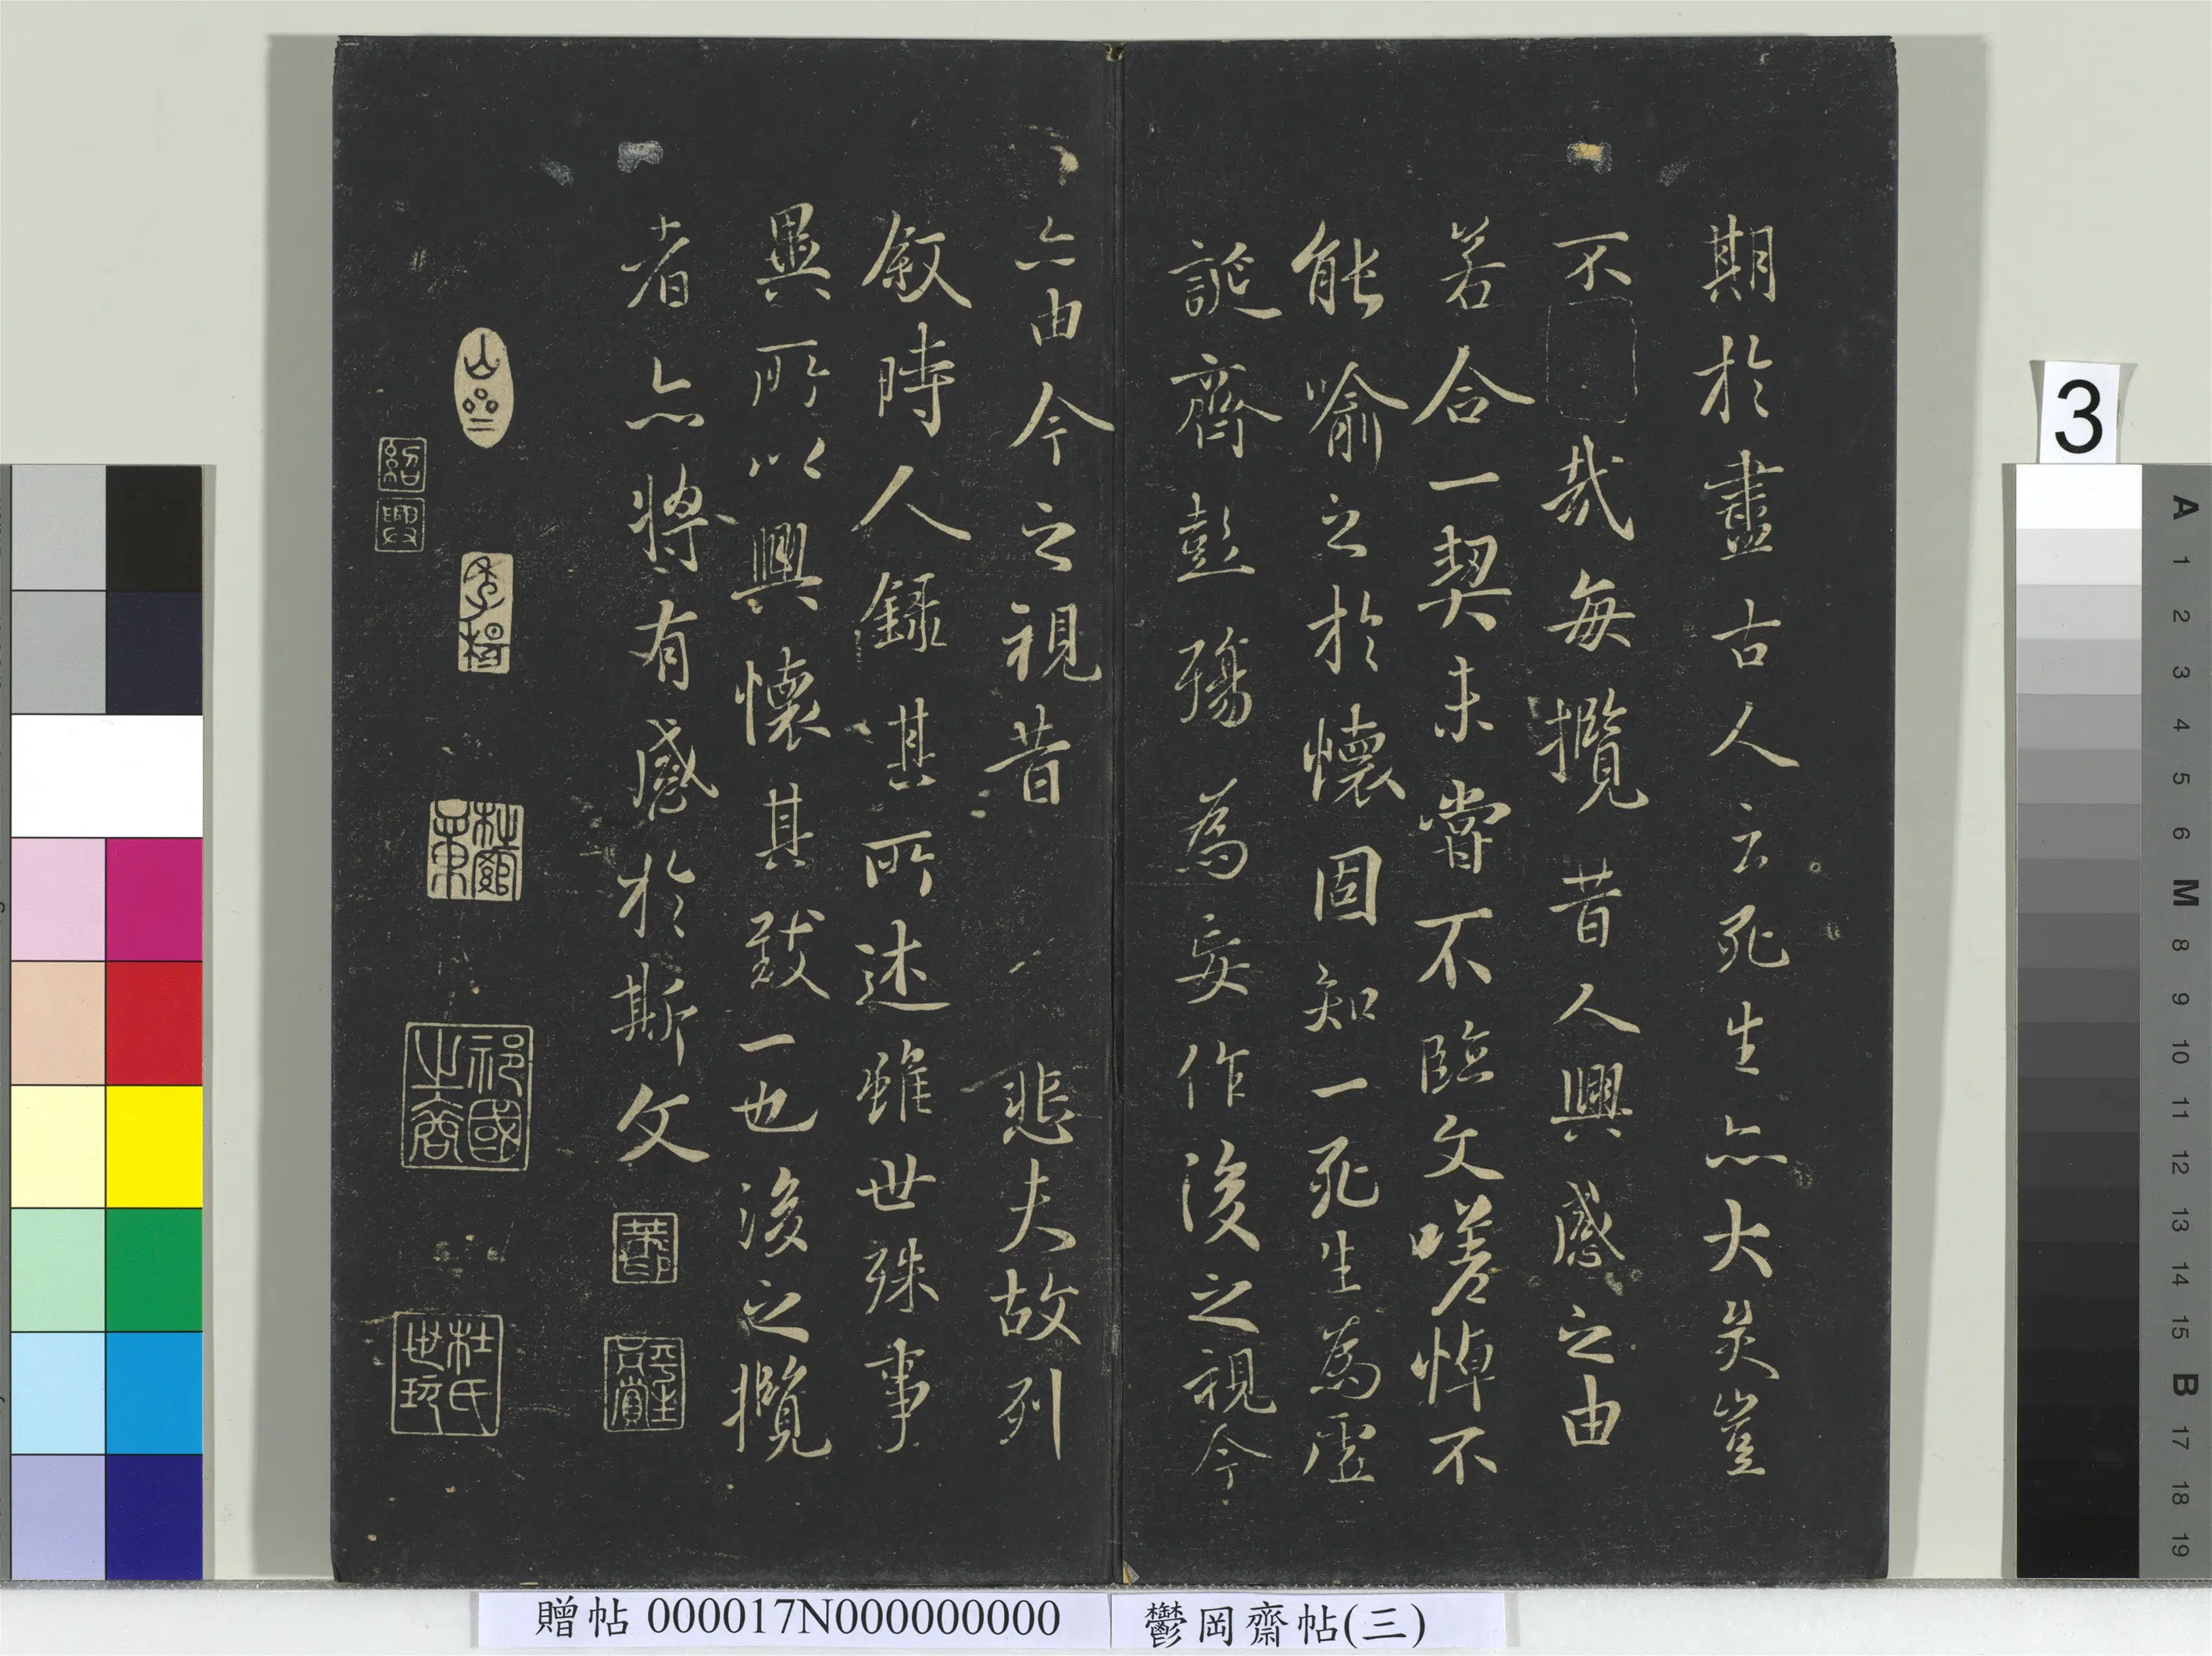 期於盡古人云死生亦大矣豈
不哉每攬昔人興感之由
若合一契未嘗不臨文嗟悼不
能喻之於懷固知一死生為虛
誕齊彭殤為妄作後之視今
亦由今之視昔悲夫故列
叙時人錄其所述雖世殊事
異所以興懷其致一也後之攬
者亦將有感於斯文
祁國之裔
杜氏世
紹興
3
A 1 2 3 4 5 6 M 8 9 10 11 12 13 14 15 B 17 18 19
贈帖 000017N000000000
鬱岡齋帖(三)